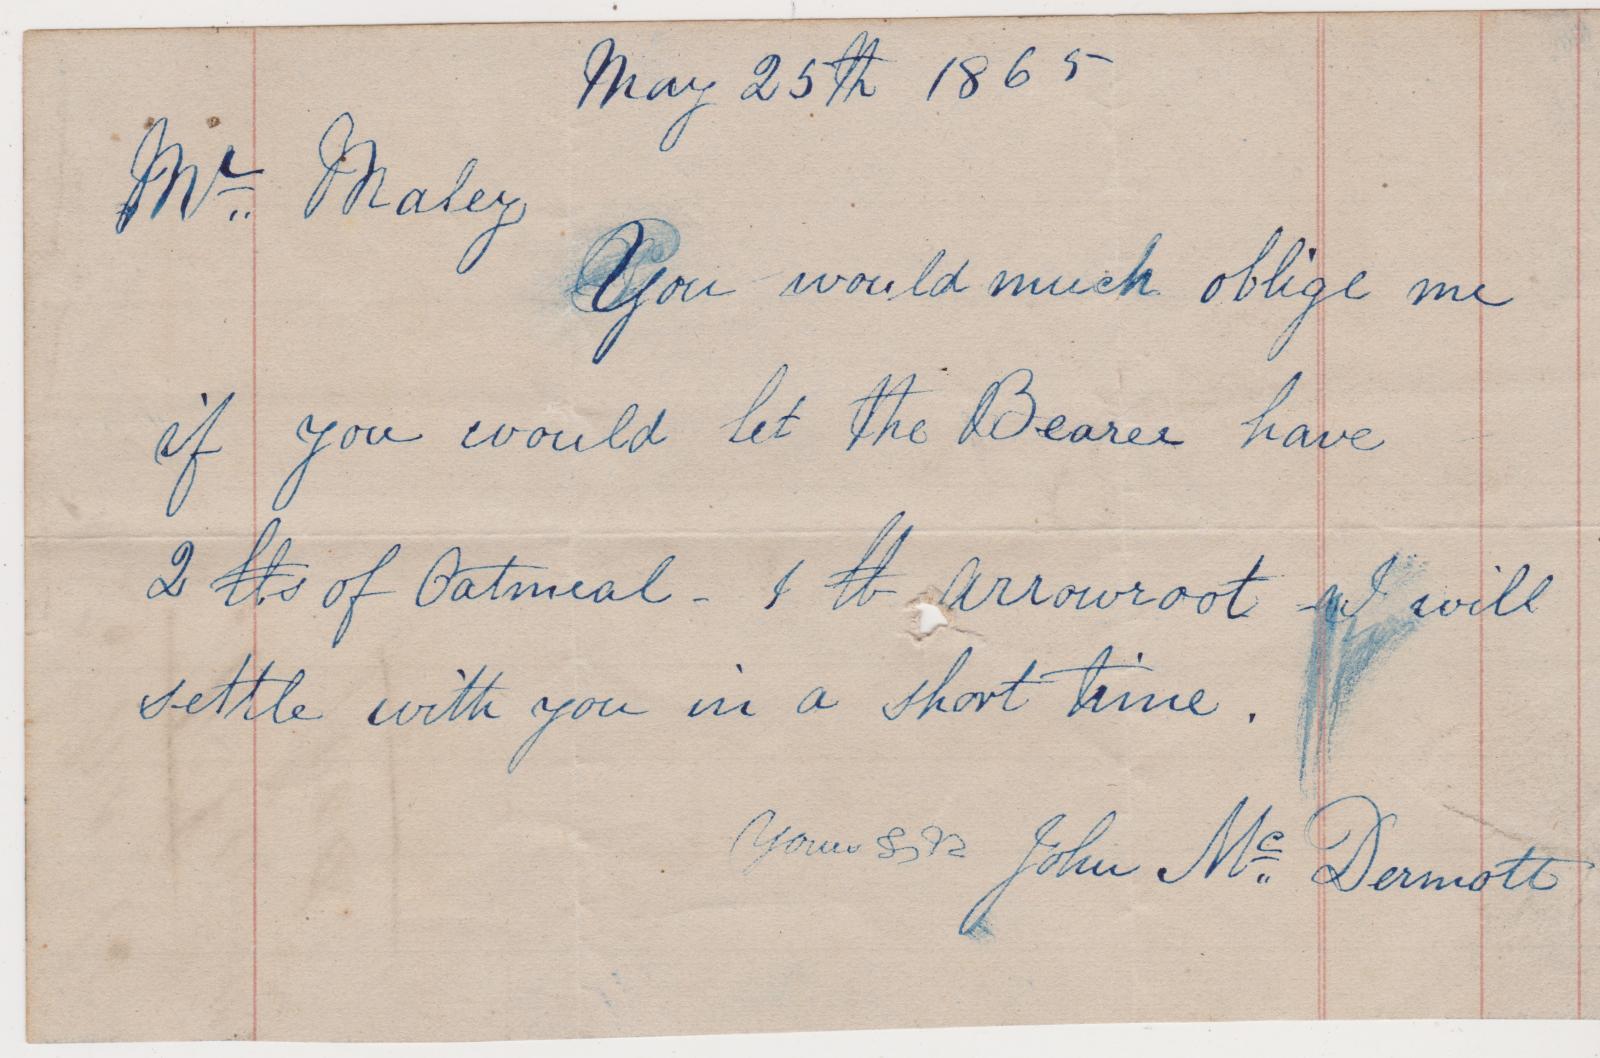 May 25th 1865
Mr. Maley
You would much oblige me
if you would let the Bearer have
2 lbs of Oatmeal - 1 lb arrowroot - I will
settle with you in a short time.
Yours &c John Mc. Dermott